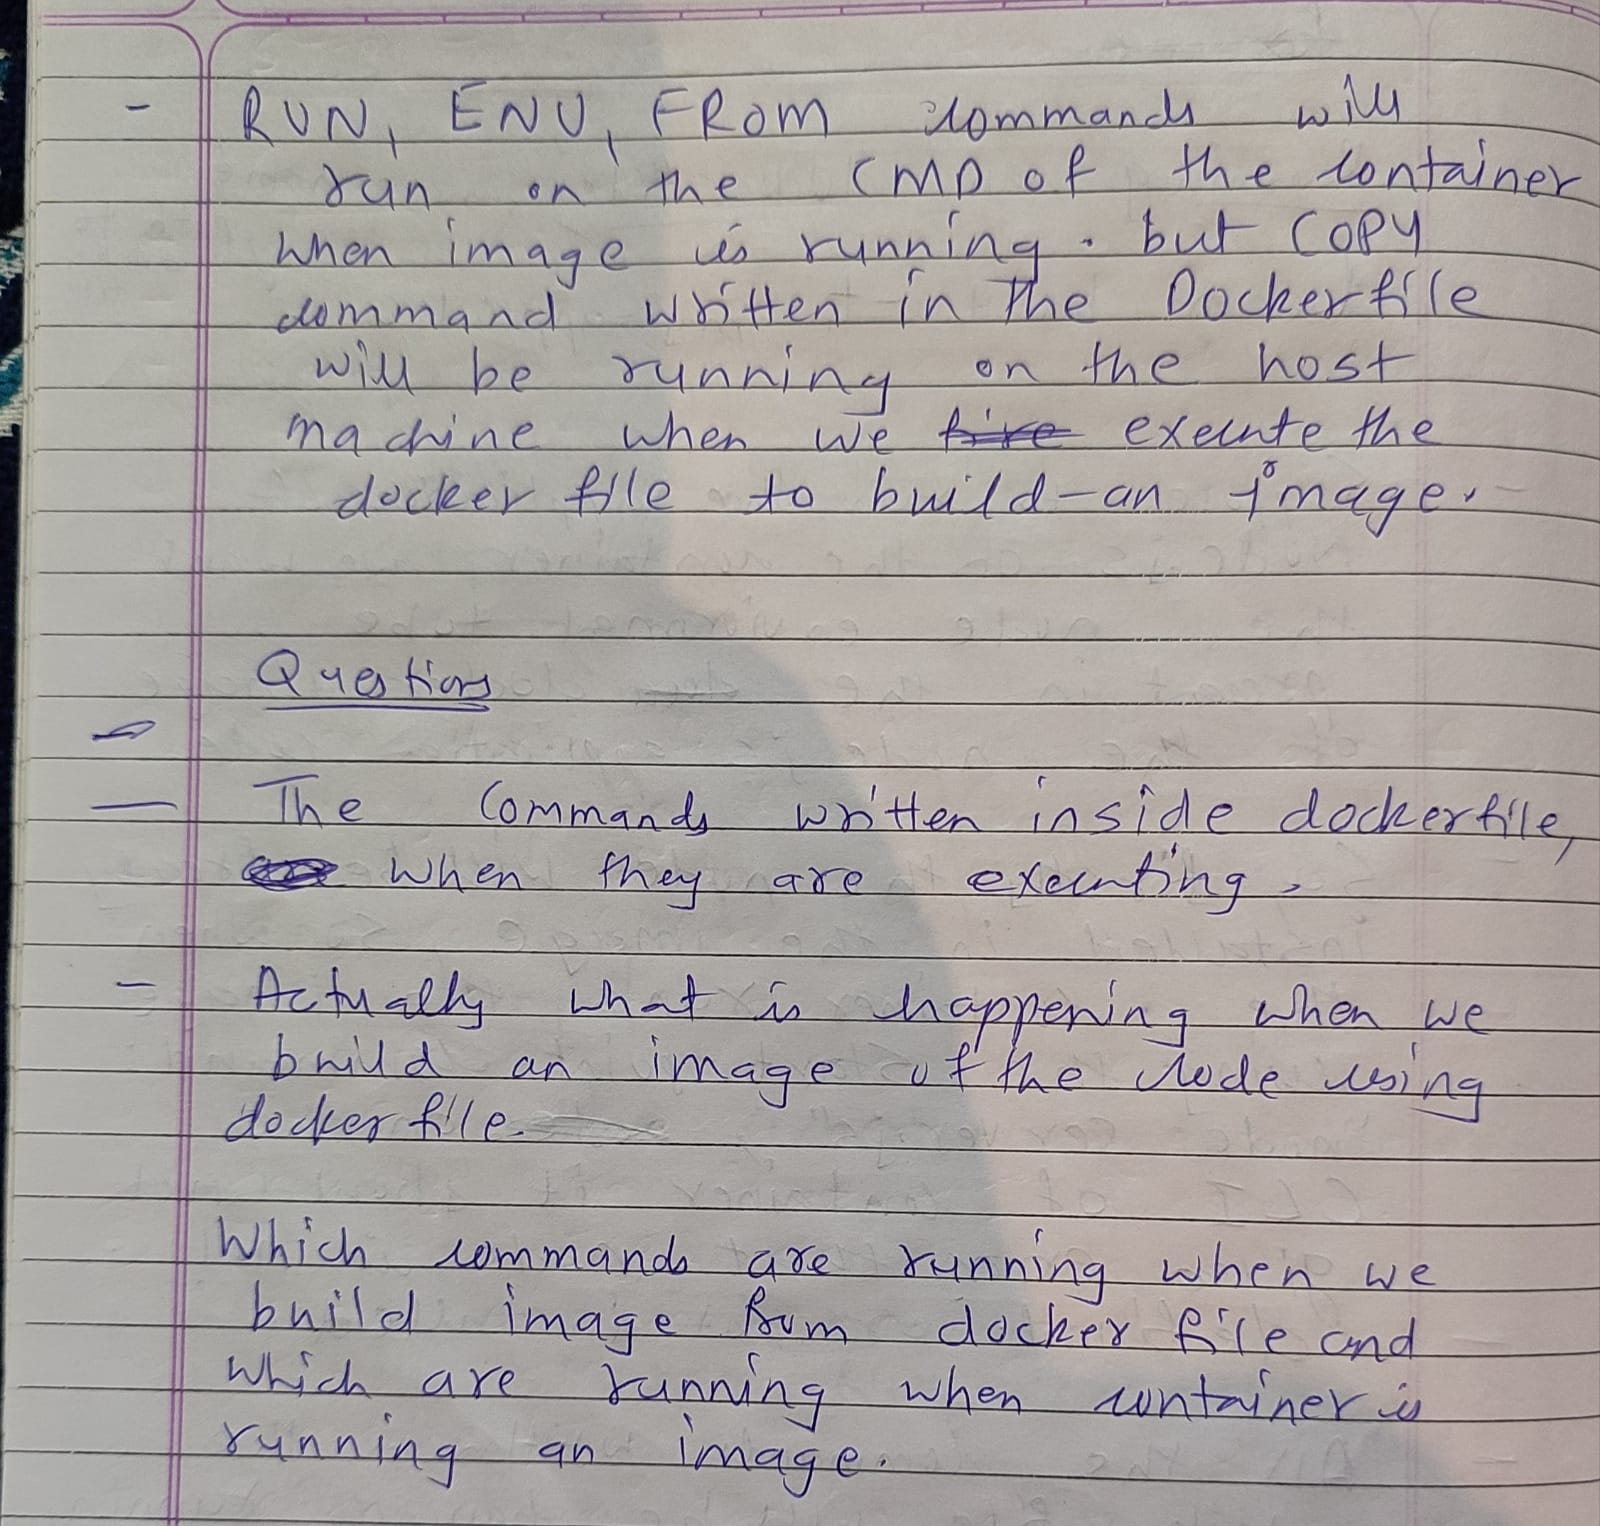 - RUN, ENV, FROM commands will
run on the CMD of the container
when image is running. but COPY
command written in the Dockerfile
will be running on the host
machine when we execute the
docker file to build-an image.
Questions
- The Commands written inside dockerfile,
when they are executing.
- Actually what is happening when we
build an image of the code using
docker file.
Which commands are running when we
build image from docker file and
which are running when container is
running an image.